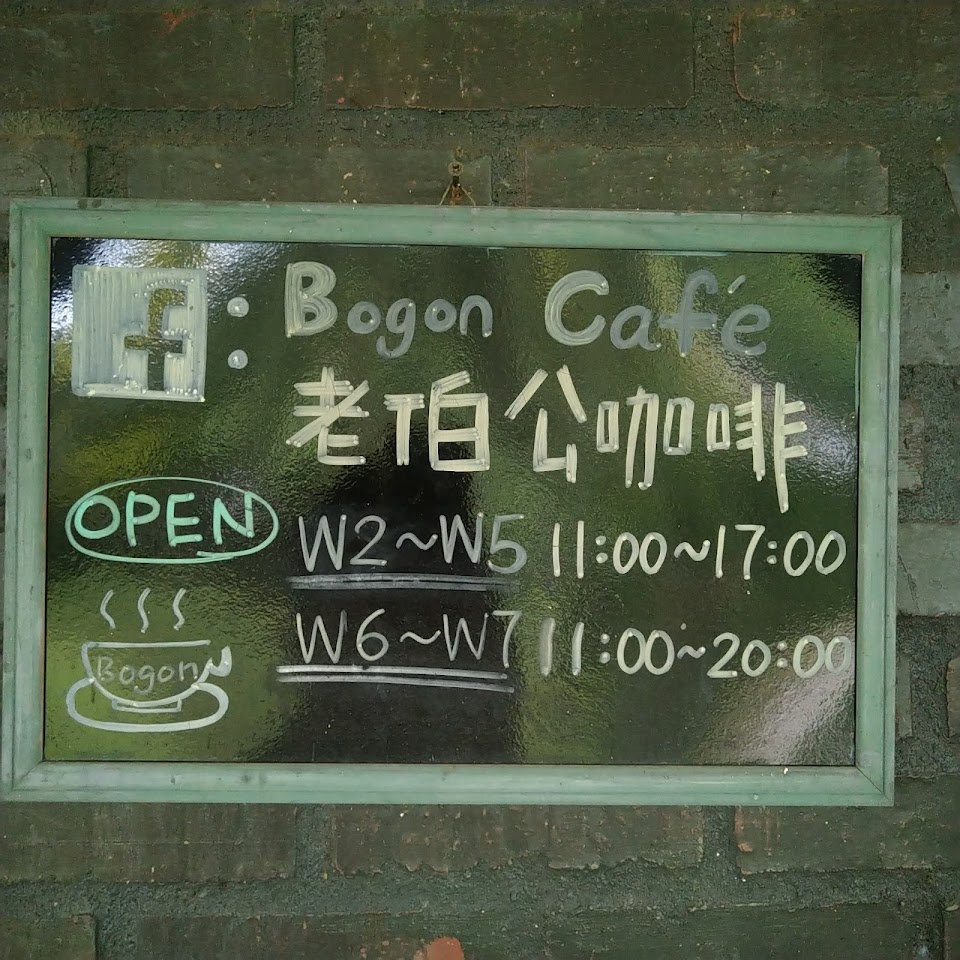 f: Bogon Café
老伯公咖啡
OPEN
W2~W5 11:00~17:00
W6~W7 11:00~20:00
Bogon